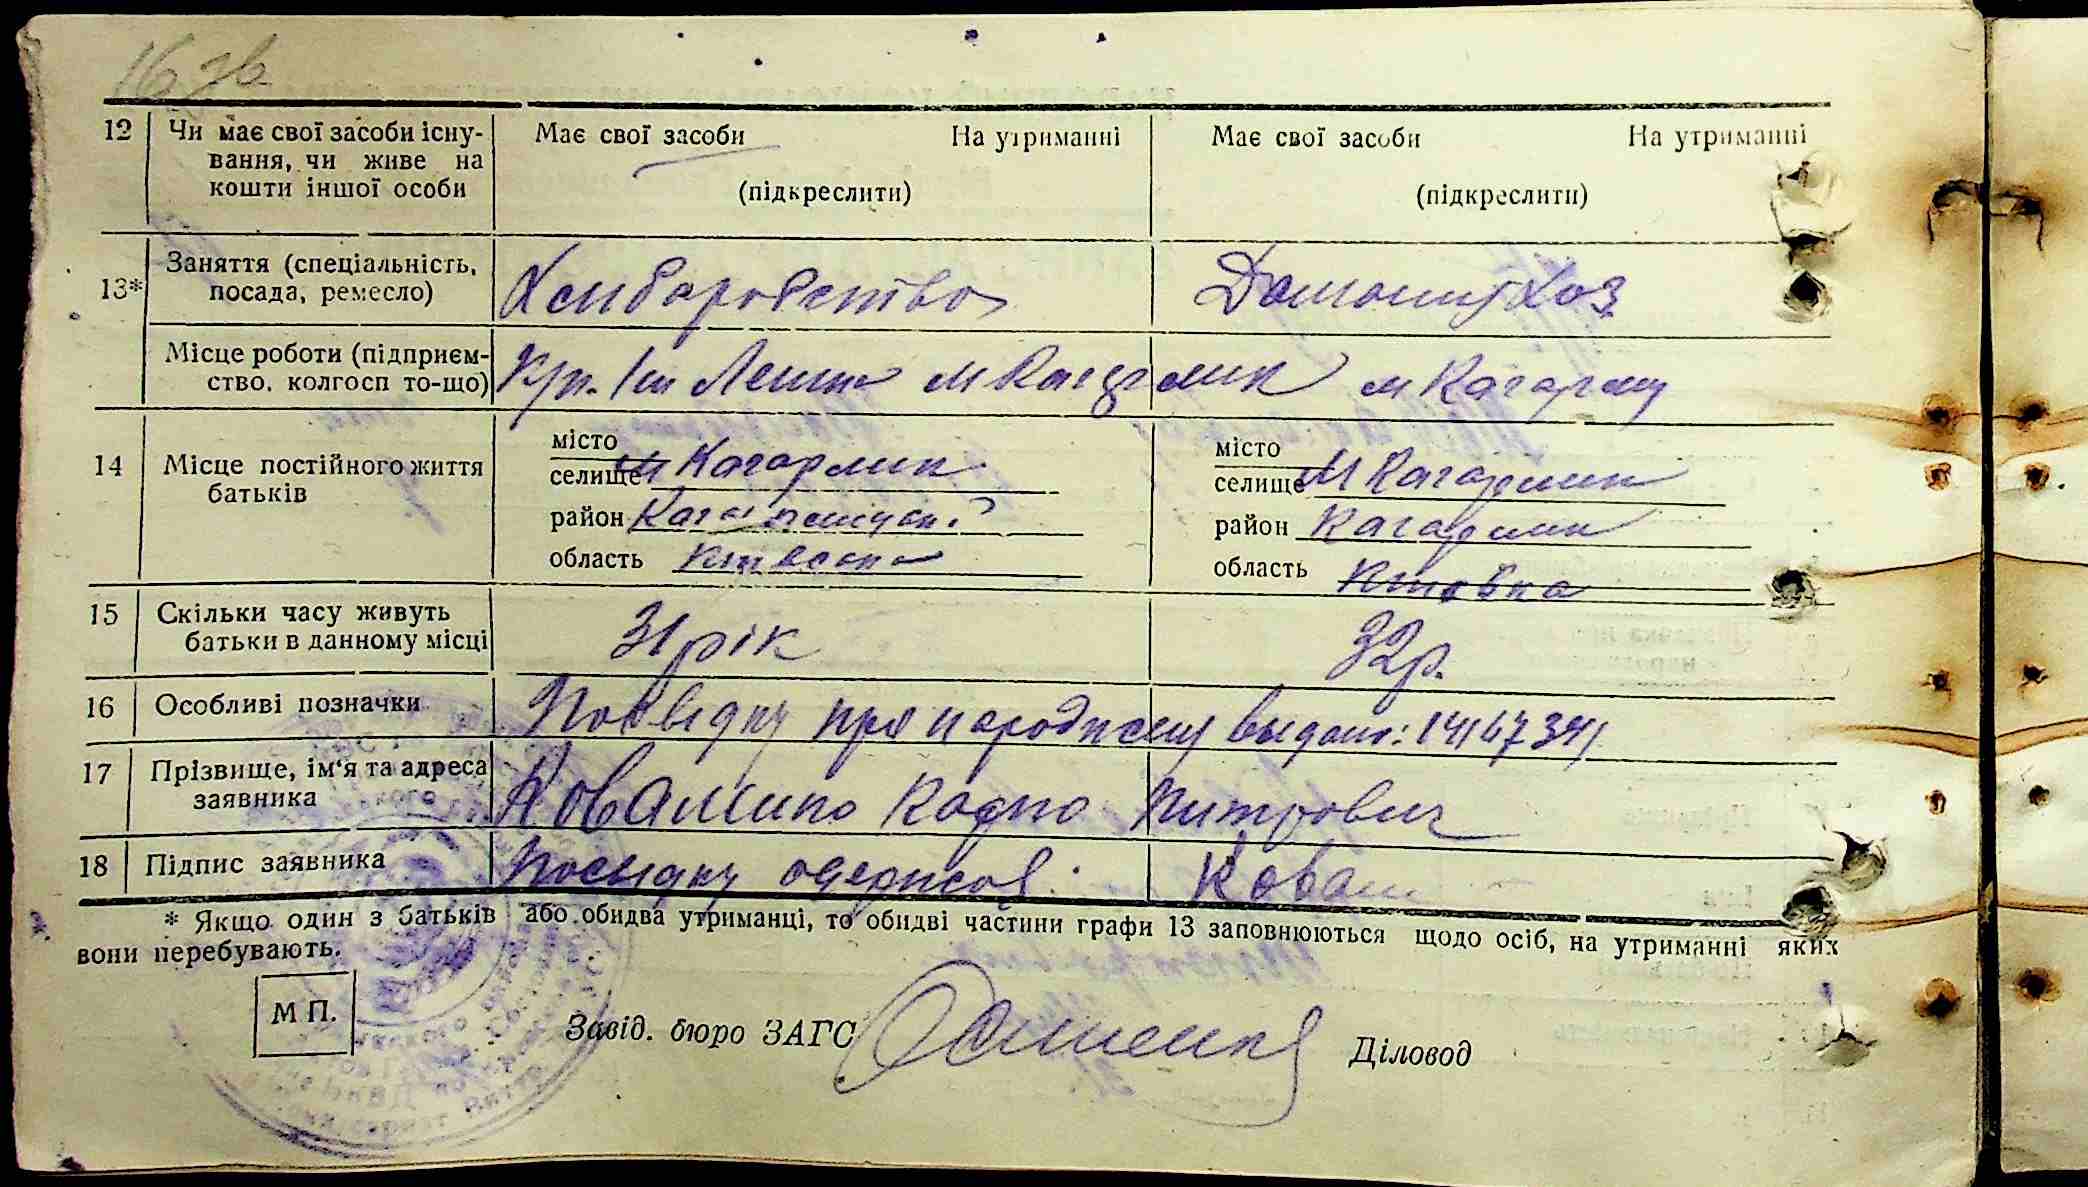 16 зв.
12 Чи має свої засоби існу-
вання, чи живе на
кошти іншої особи
Має свої засоби На утриманні
(підкреслити)
Має свої засоби На утриманні
(підкреслити)
13* Заняття (спеціальність,
посада, ремесло)
Хліборобство
Домашнє хоз
Місце роботи (підприєм-
ство, колгосп то-що)
Ім Леніна м Кагарлик м Кагарлик
14 Місце постійного життя
батьків
місто
селище м Кагарлик
район
область Київська
місто
селище м Кагарлик
район Кагарлик
область
15 Скільки часу живуть
батьки в данному місці
31 рік
32 р.
16 Особливі позначки
Посвідку про народження видано:
17 Прізвище, ім'я та адреса
заявника
18 Підпис заявника
Посвідку одержав. Ковал
* Якщо один з батьків або обидва утриманці, то обидві частини графи 13 заповнюються щодо осіб, на утриманні яких
вони перебувають.
М П.
Завід. бюро ЗАГС
Діловод